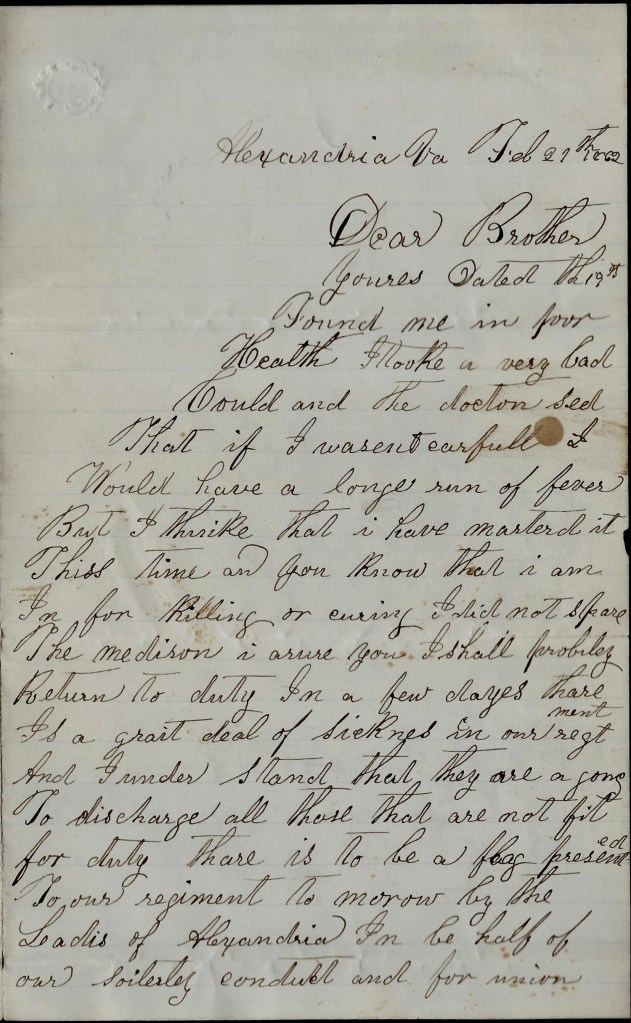 Alexandria Va Feb 21th 1862
Dear Brother
Youres Dated th 19th
Found me in poor
Health I tooke a very bad
Could and the docton sed
That if I warent carfull I
Would have a longe run of fever
But I thinke that i have masterd it
Thiss time an you know that i am
In for killing or curing I did not spare
The medison i asure you I shall probiley
Return to duty In a few dayes thare
Is a grait deal of sickness in our regtment
And I under stand that they are a gong
To discharge all those that are not fit
for duty thare is to be a flag presented
To our regiment to morow by the
Leadis of Alexandria In be half of
our soilerley conduct and for union